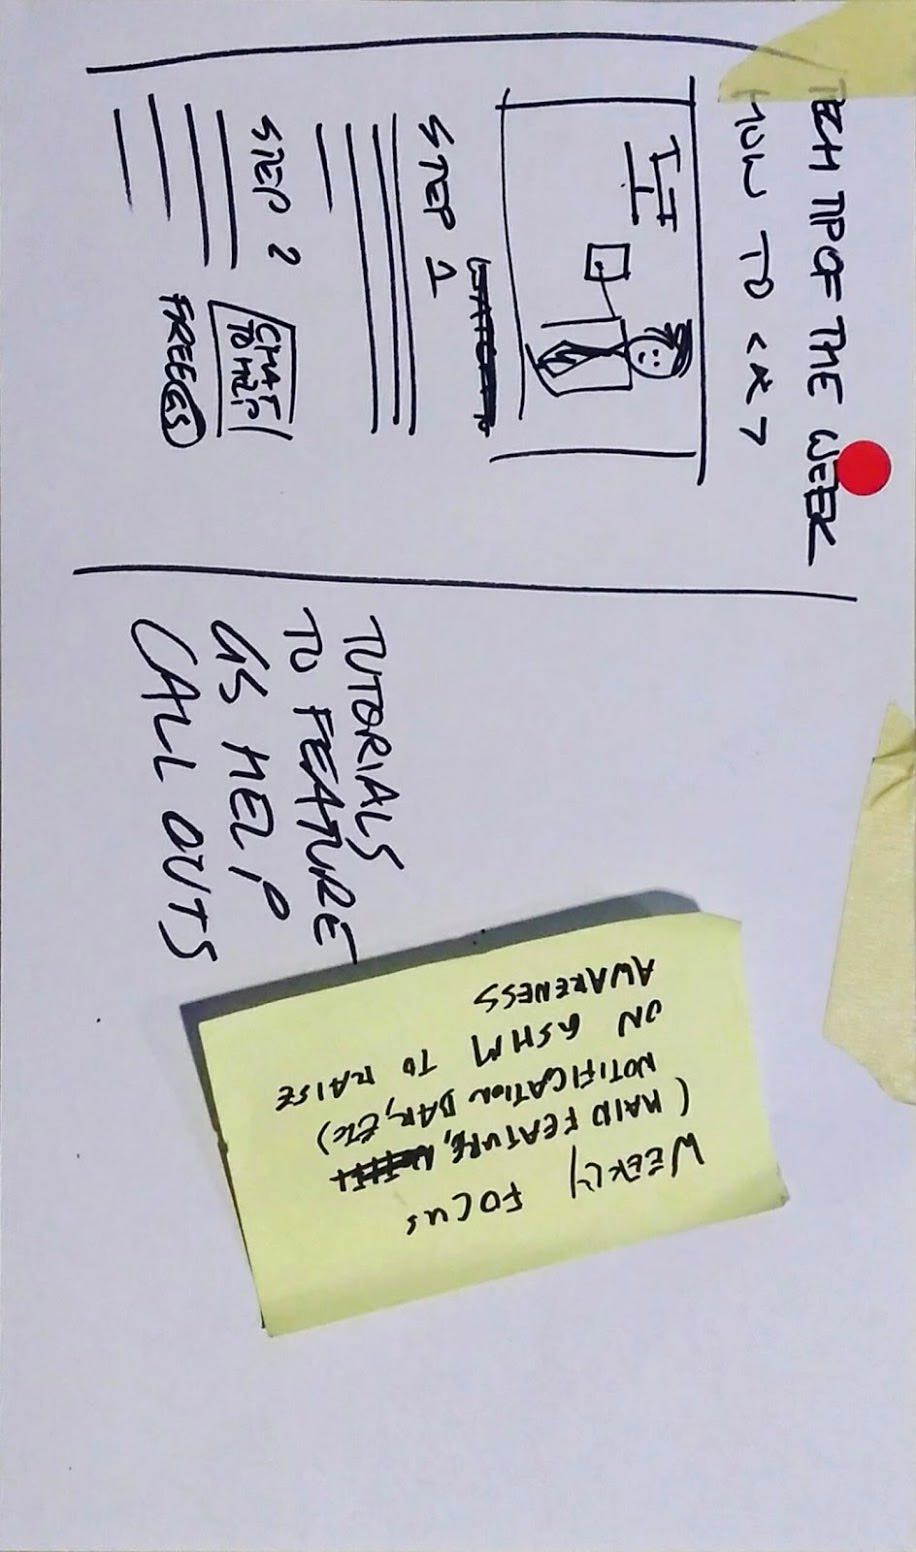 TECH TIP OF THE WEEK
HOW TO < X >
STEP 1
STEP 2
CHAT
TO HELP
FREE GS
TUTORIALS
TO FEATURE
GS HELP
CALL OUTS
WEEKLY FOCUS
(MAID FEATURE,
NOTIFICATION BAR, ETC)
ON GSHM TO RAISE
AWARENESS